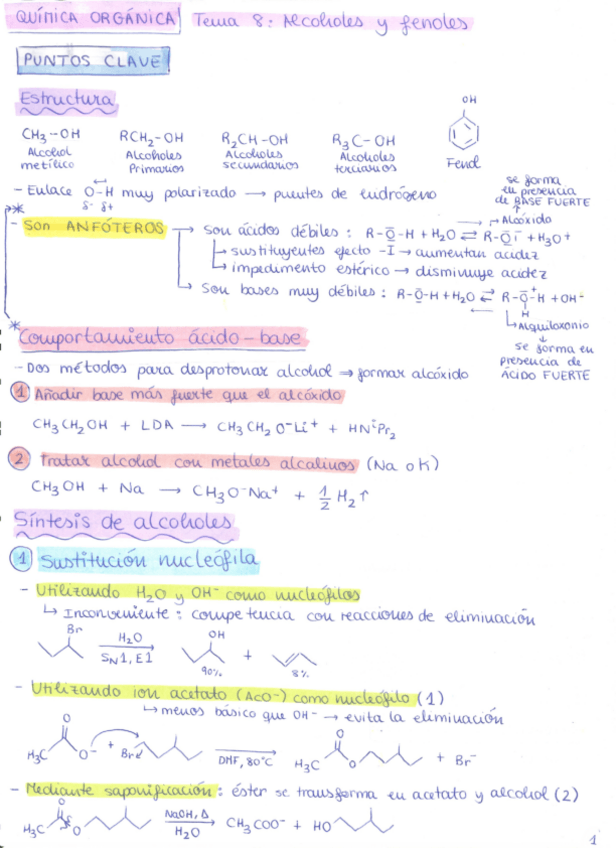 QUÍMICA ORGÁNICA Tema 8: Alcoholes y fenoles
PUNTOS CLAVE
Estructura
CH3-OH RCH2-OH R2CH-OH R3C-OH OH
Alcohol metílico Alcoholes Primarios Alcoholes secundarios Alcoholes terciarios Fenol
- Enlace O-H muy polarizado → puentes de hidrógeno
δ- δ+
se forma en presencia de BASE FUERTE
Alcóxido
* - Son ANFÓTEROS → Son ácidos débiles: R-O-H + H2O ⇌ R-O|⁻ + H3O+
↳ sustituyentes efecto -I → aumentan acidez
↳ impedimento estérico → disminuye acidez
→ Son bases muy débiles: R-O-H + H2O ⇌ R-O⁺-H + OH-
H
Alquiloxonio
se forma en presencia de ÁCIDO FUERTE
* Comportamiento ácido-base
- Dos métodos para desprotonar alcohol → formar alcóxido
① Añadir base más fuerte que el alcóxido
CH3CH2OH + LDA → CH3CH2O-Li+ + HNiPr2
② Tratar alcohol con metales alcalinos (Na o K)
CH3OH + Na → CH3O-Na+ + 1/2 H2↑
Síntesis de alcoholes
① Sustitución nucleófila
- Utilizando H2O y OH- como nucleófilos
↳ Inconveniente: competencia con reacciones de eliminación
Br H2O OH
SN1, E1 +
90% 8%
- Utilizando ion acetato (AcO-) como nucleófilo (1)
↳ menos básico que OH- → evita la eliminación
O O
H3C O- + Br DMF, 80°C H3C O + Br-
- Mediante saponificación: éster se transforma en acetato y alcohol (2)
O
H3C O NaOH, Δ H2O CH3COO- + HO
1